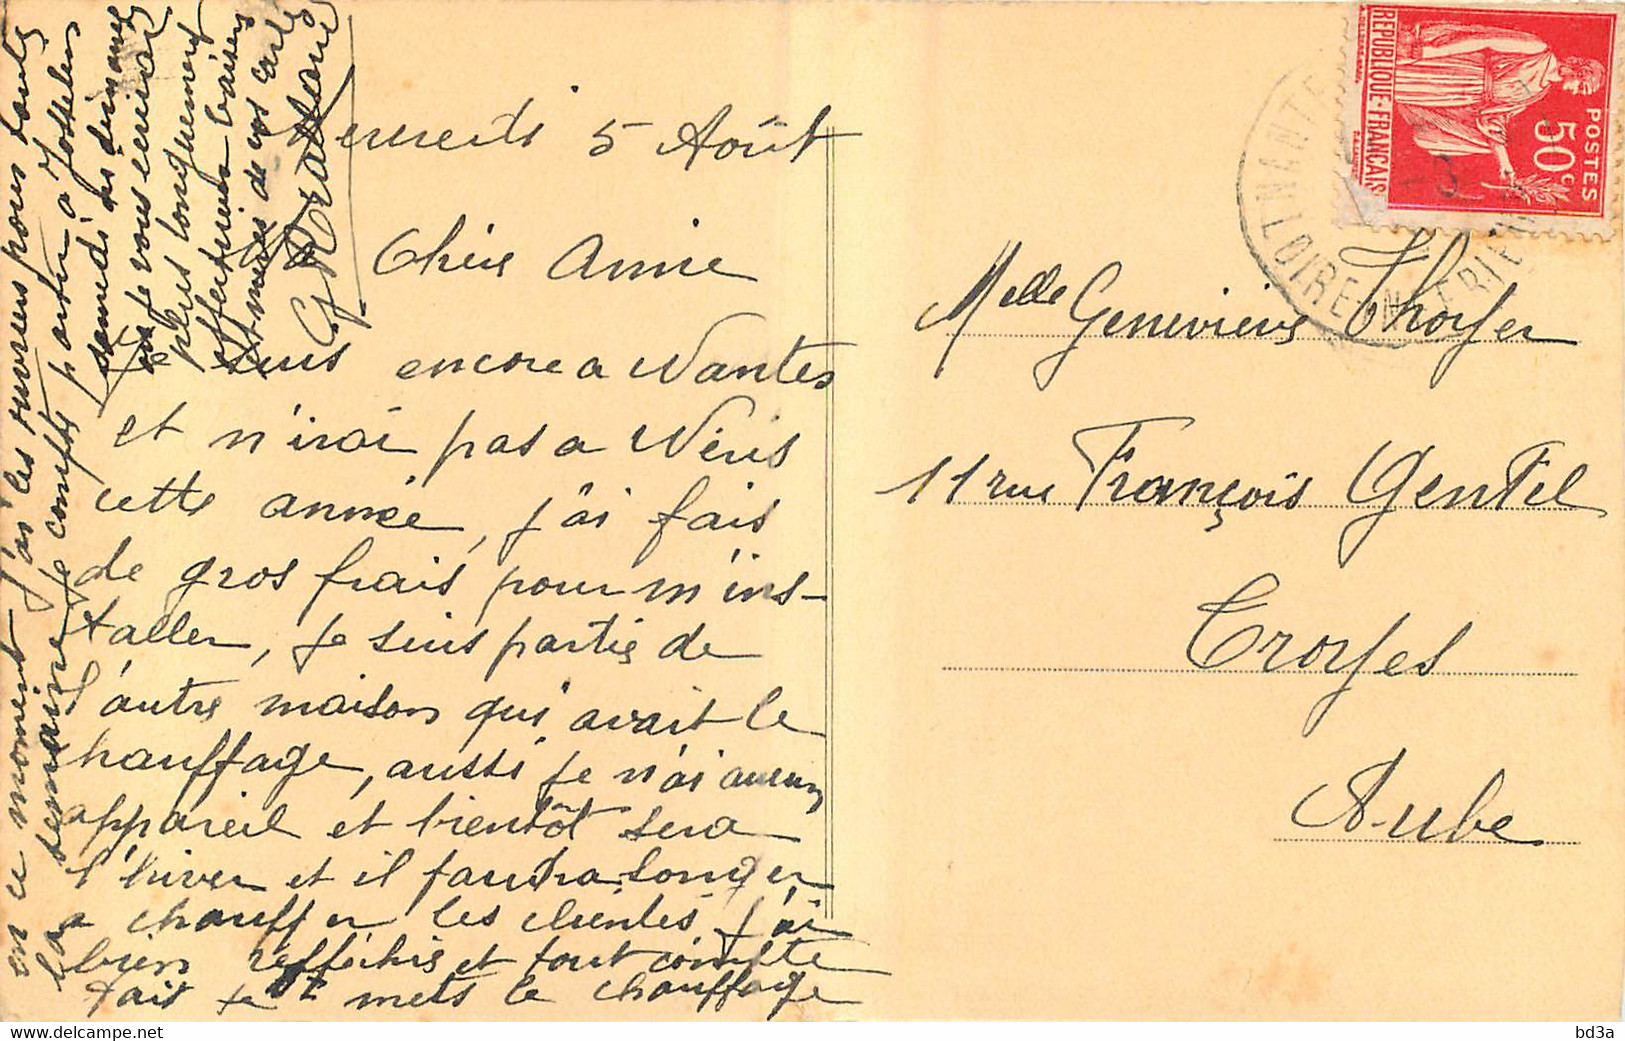 Mercredi 5 Août
Ma Chère Amie
Je suis encore a Nantes
et n'irai pas a Néris
cette année, j'ai fais
de gros frais pour m'ins-
taller, je suis partie de
l'autre maison qui avait le
chauffage, aussi je n'ai aucun
appareil et bientôt sera
l'hiver et il faudra songer
a chauffer les clientes j'ai
bien refféchis et tout compte
fait je mets le chauffage
en ce moment j'ai les ouvriers pour toute
la semaine je compte partir a Josselin
samedi ou dimanche
ou je vous écrirai
plus longuement
affectueux baisers
et merci de vos carte
Melle Geneviève Thoyer
11 rue François Gentil
Troyes
Aube
REPUBLIQUE FRANÇAISE
POSTES
50c
NANTES
LOIRE-INFERIEURE
bd3a
www.delcampe.net